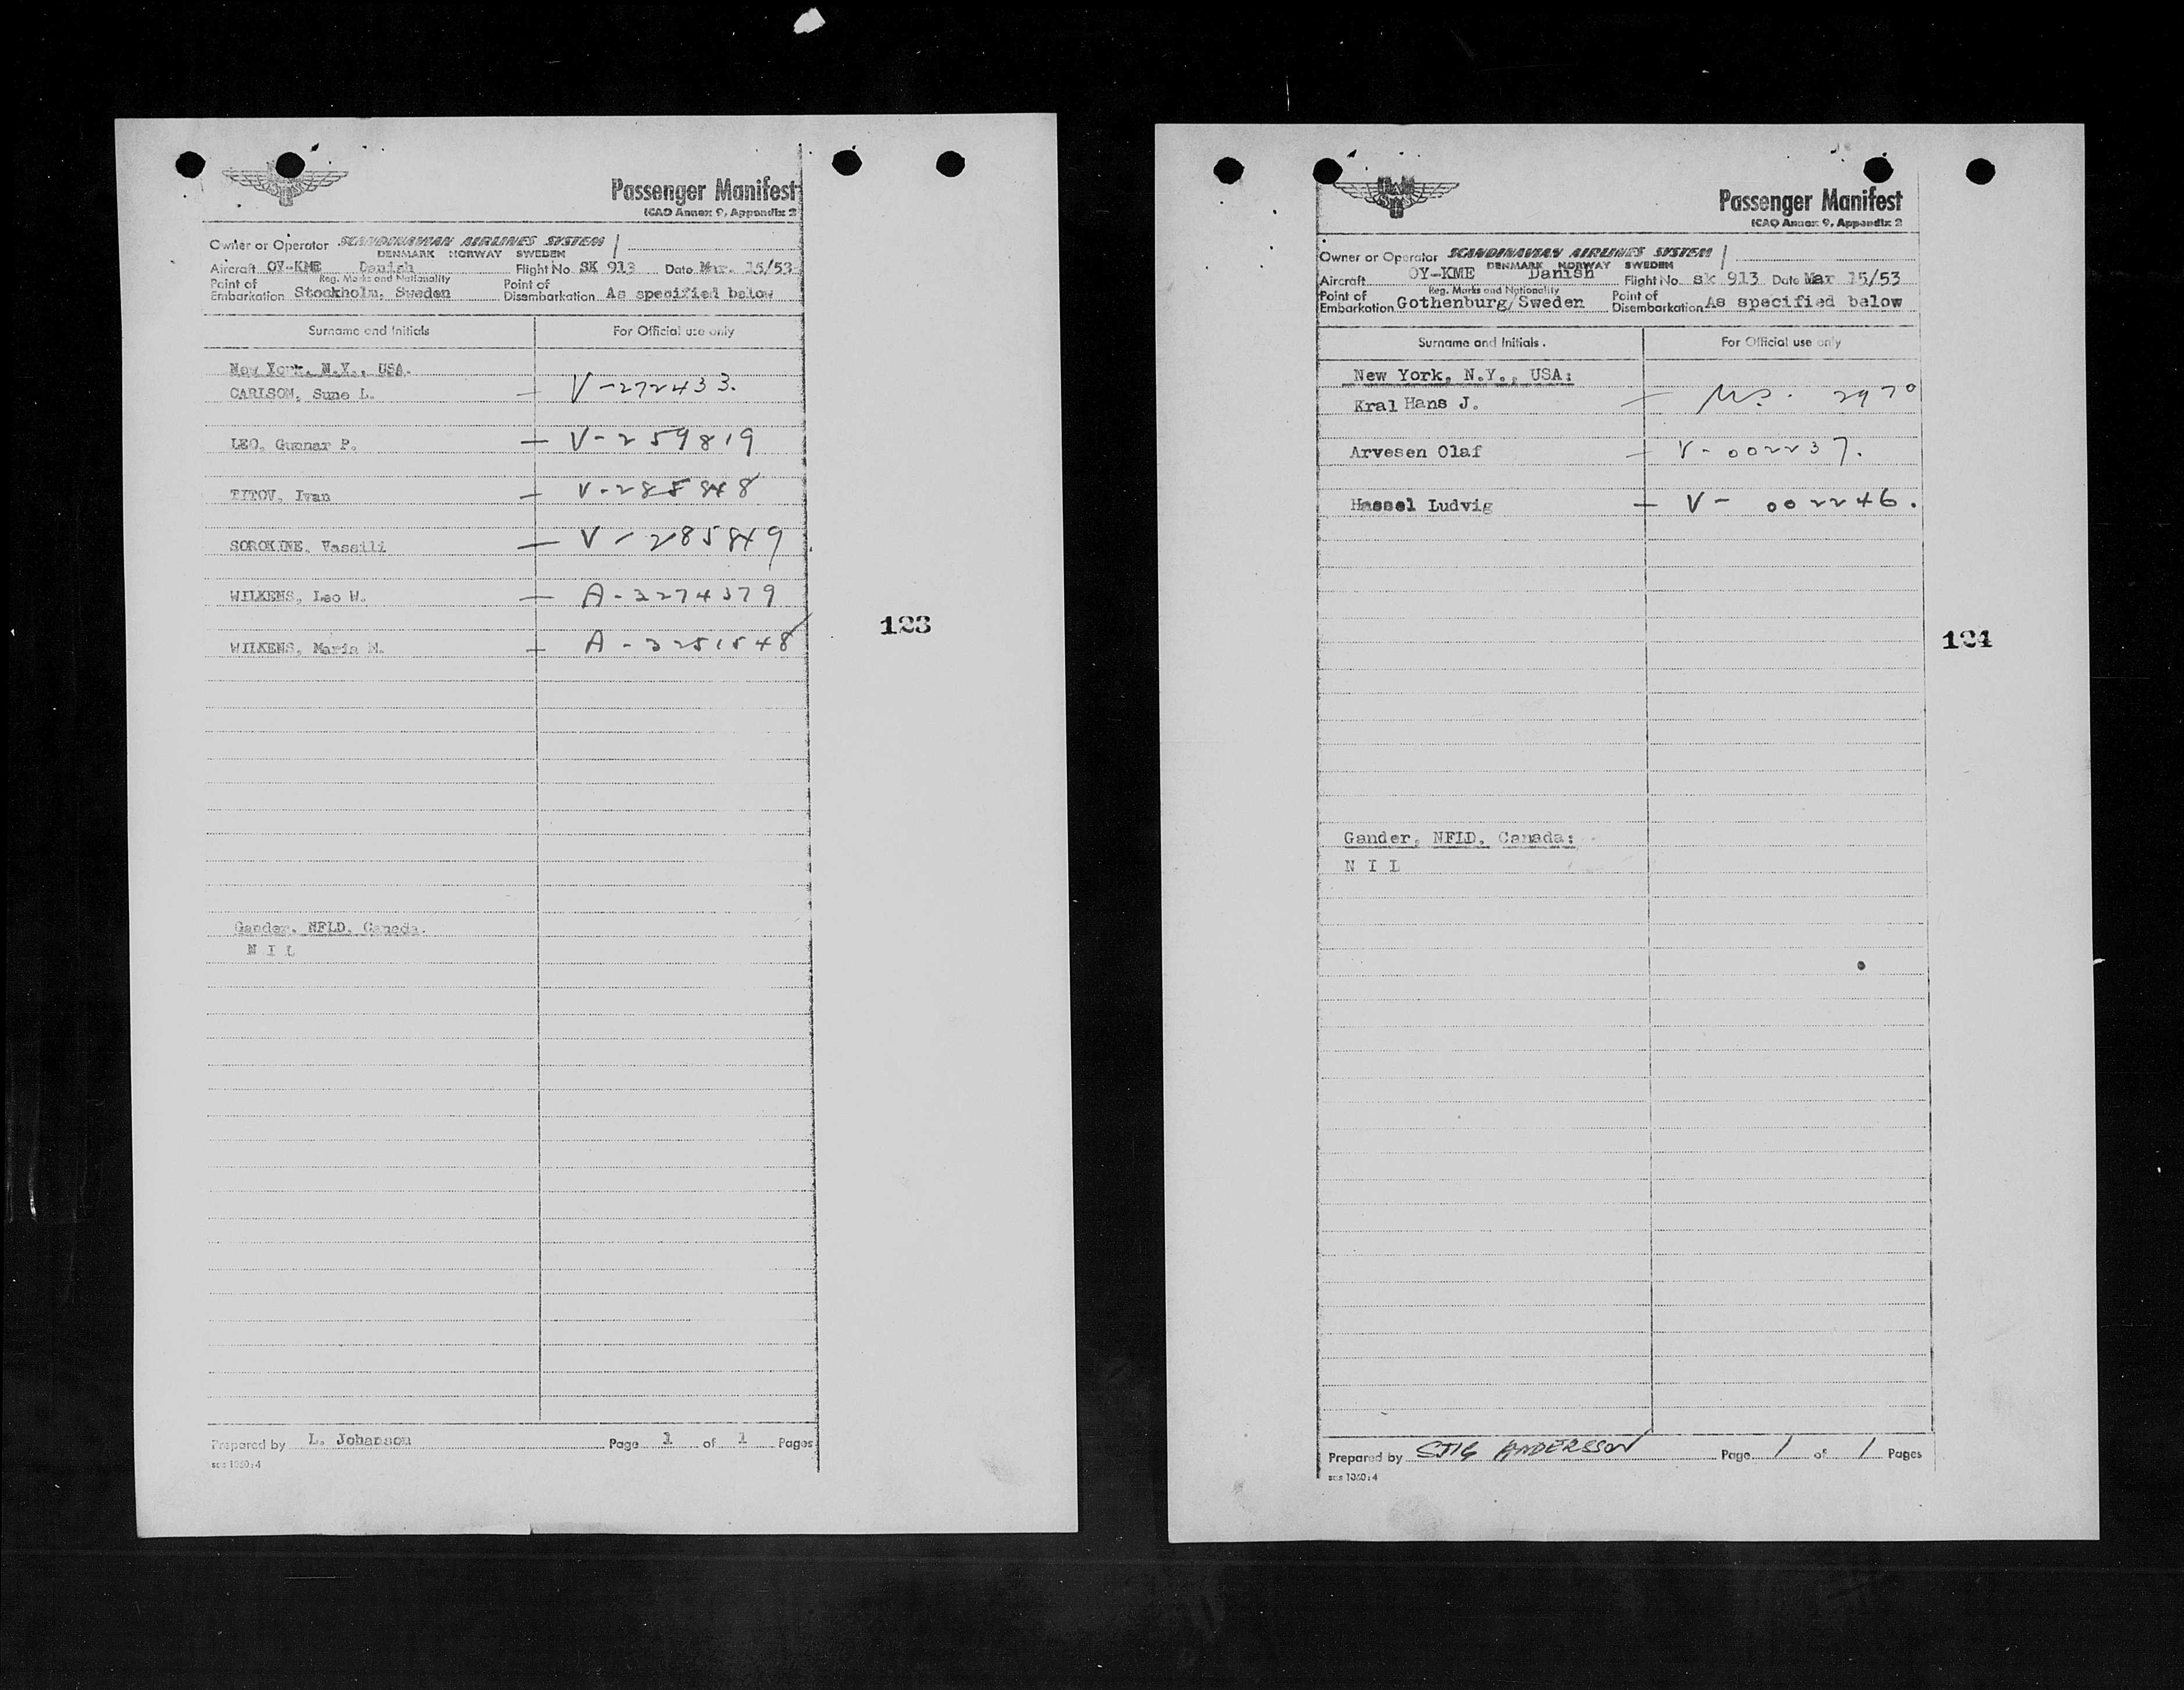 Passenger Manifest
ICAO Annex 9, Appendix 2
Owner or Operator SCANDINAVIAN AIRLINES SYSTEM
DENMARK NORWAY SWEDEN
Aircraft OY-KME Danish Flight No SK 913 Date Mar. 15/53
Reg. Marks and Nationality
Point of Embarkation Stockholm, Sweden Point of Disembarkation As specified below
Surname and Initials For Official use only
New York, N.Y., USA.
CARLSON, Sune L. — V-272433.
LEO, Gunnar P. — V-259819
TITOV, Ivan — V-285848
SOROKINE, Vassili — V-285849
WILKENS, Leo W. — A-3274379
WILKENS, Maria M. — A-3251548
123
Gander, NFLD, Canada.
N I L
Prepared by L. Johanson Page 1 of 1 Pages
sas 1060:4
Passenger Manifest
ICAO Annex 9, Appendix 2
Owner or Operator SCANDINAVIAN AIRLINES SYSTEM
DENMARK NORWAY SWEDEN
Aircraft OY-KME Danish Flight No. sk 913 Date Mar 15/53
Reg. Marks and Nationality
Point of Embarkation Gothenburg/Sweden Point of Disembarkation As specified below
Surname and Initials. For Official use only
New York, N.Y., USA:
Kral Hans J. — 2970
Arvesen Olaf — V-002237.
Hassel Ludvig — V-002246.
124
Gander, NFLD, Canada:
N I L
Prepared by STIG ANDERSSON Page 1 of 1 Pages
sas 1060:4